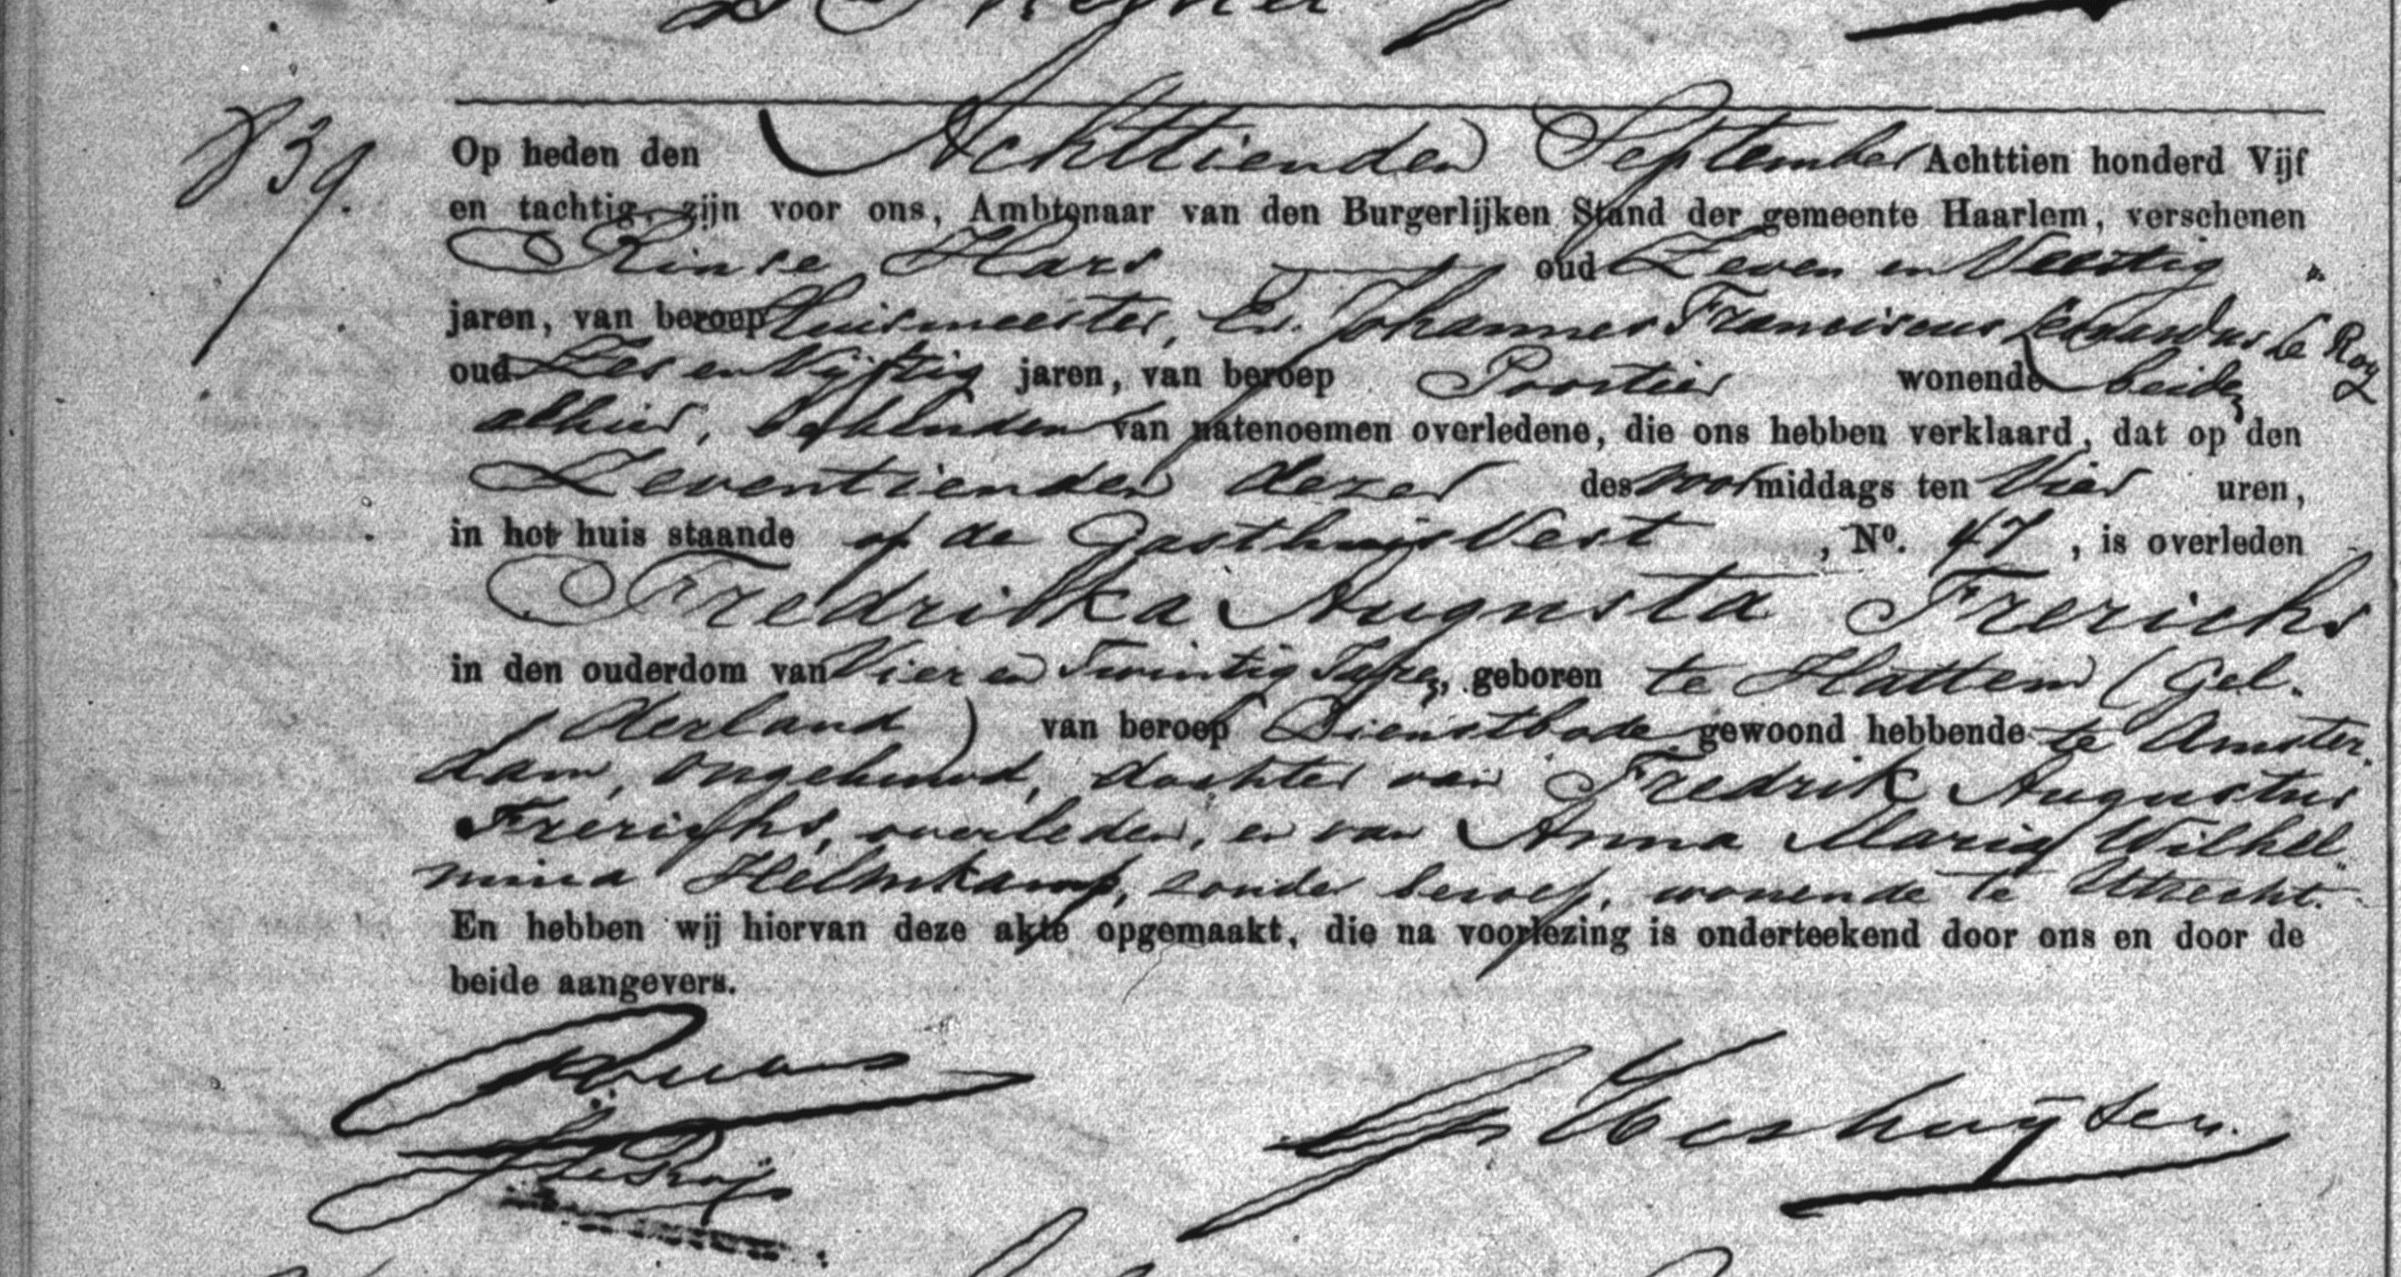 839.
Op heden den Achttienden September Achttien honderd Vijf
en tachtig, zijn voor ons, Ambtenaar van den Burgerlijken Stand der gemeente Haarlem, verschenen
Rinse Hars oud Zeven en Veertig
jaren, van beroep Huismeester, En Johannes Franciscus le Roy
oud Zes en Vijftig jaren, van beroep Portier wonende beiden
alhier, bekenden van natenoemen overledene, die ons hebben verklaard, dat op den
Zeventienden dezer des voormiddags ten Vier uren,
in het huis staande op de Gasthuis Vest, No. 47, is overleden
Fredrika Augusta Frerichs
in den ouderdom van Vier en Twintig Jaren, geboren te Hattem (Gel-
derland) van beroep Dienstbode gewoond hebbende te Amster-
dam, ongehuwd, dochter van Fredrik Augustus
Frerichs, overleden, en van Anna Maria Wilhel-
mina Helmkamp, zonder beroep, wonende te Utrecht.
En hebben wij hiervan deze akte opgemaakt, die na voorlezing is onderteekend door ons en door de
beide aangevers.